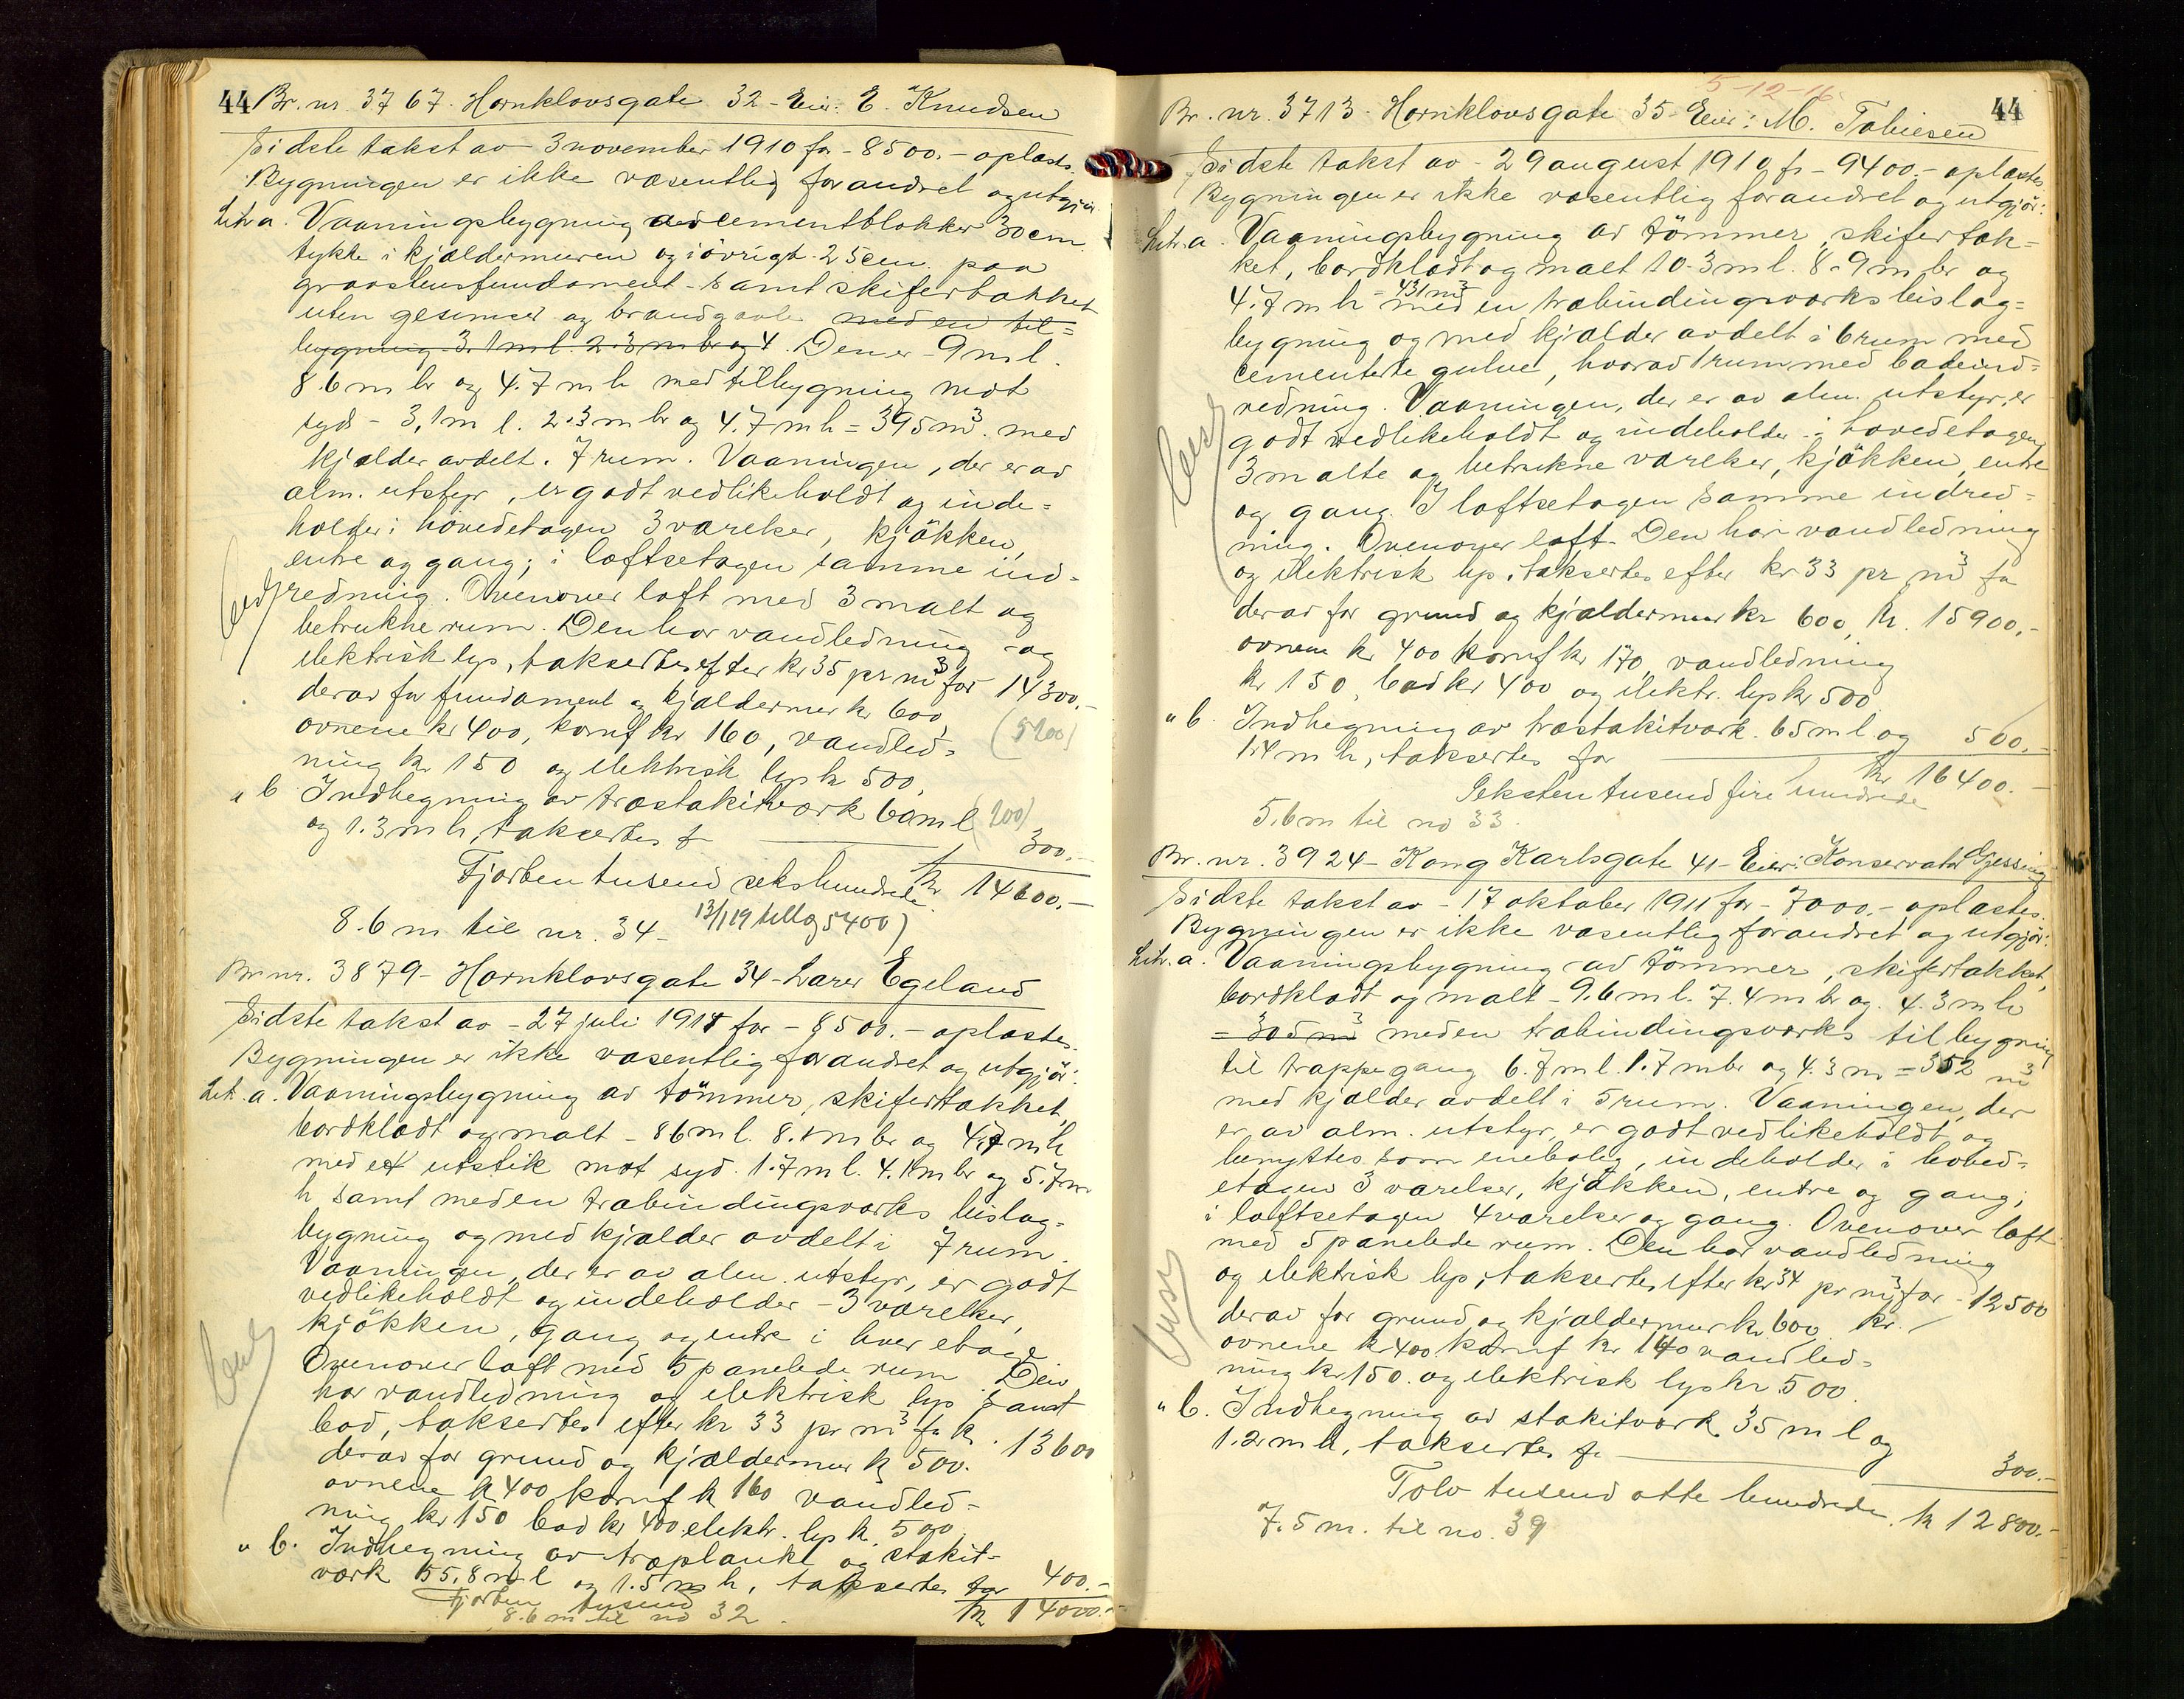 44 Br. nr. 3767. Hornklovsgate 32 - Eier: E. Knudsen
Sidste takst av - 3 november 1910 for - 8500.- oplæstes.
Bygningen er ikke væsentlig forandret og utgjør
Litr a. Vaaningsbygning av cementblokker 30 cm
tykke i kjældermuren og i övrigt 25 cm. paa
graastensfundament - samt skifertækket
uten gesimser og brandgavle med en til=
bygning 3.1 m l. 2.3 m br og 4. Den er - 9 m l.
8.6 m br og 4.7 m h med tilbygning mot
syd - 3,1 m l. 2.3 m br og 4.7 m h = 395 m3. med
kjælder avdelt i 7 rum. Vaaningen, der er av
alm. utstyr, er godt vedlikeholdt og inde=
holder i hovedetagen 3 værelser, kjökken,
entre og gang; i loftsetagen samme ind=
redning. Ovenover loft med 3 malt og
betrukne rum. Den har vandledning og
elektrisk lys, taksertes efter kr 35 pr m3 for 14300.-
derav for fundament og kjældermur kr 600,
ovnene kr 400, komf kr 160, vandled= (5200)
ning kr 150 og elektrisk lys kr 500,
" b Indhegning av træstakitværk 60 m l (200)
og 1.3 m h, taksertes f 300.-
Fjorten tusend sekshundrede. kr 14600.-
8.6 m til nr. 34 - 13/1 19 tillæg 5400)
Br. nr. 3879 - Hornklovsgate 34 - Lærer Egeland
Sidste takst av - 27 juli 1911 for - 8500.- oplæstes.
Bygningen er ikke væsentlig forandret og utgjør:
Litr. a. Vaaningsbygning av tömmer, skifertækket,
bordklædt og malt - 8 6 m l. 8.1 m br og 4.7 m h
med et utstik mot syd. 1.7 m l. 4.1 m br og 5.7 m
h samt med en træbindingsværks bislag=
bygning og med kjælder avdelt i 7 rum.
Vaaningen, der er av alm. utstyr, er godt
vedlikeholdt og indeholder - 3 værelser,
kjökken, gang og entre i hver etage
Ovenover loft med 5 panelede rum. Den
har vandledning og elektrisk lys samt
bad, taksertes efter kr 33 pr m3 for kr. 13600
derav for grund og kjældermur kr 500.
ovnene kr 400 komf kr 160 vandled=
ning kr 150 bad kr 400 elektr. lys kr. 500
" b. Indhegning av træplanke og stakit=
værk 55,8 m l og 1.5 m h, taksertes for 400.-
Fjorten tusend kr 14000.-
8.6 m til no 32.
5-12-16
Br. nr. 3713 - Hornklovsgate 35 - Eier: M. Tobiesen 44
Sidste takst av - 29 august 1910 fr - 9400.- oplæstes
Bygningen er ikke væsentlig forandret og utgjör:
Litr. a. Vaaningsbygning av tömmer, skifertæk=
ket, bordklædt og malt 10.3 m l. 8.9 m br og
4.7 m h = 431 m3 med en træbindingsværks bislag=
bygning og med kjælder avdelt i 6 rum med
cementerte gulve, hvorav 1 rum med badeind=
redning. Vaaningen, der er av alm. utstyr, er
godt vedlikeholdt og indeholder i hovedetagen
3 malte og betrukne værelser, kjökken, entre
og gang. I loftsetagen samme indred=
ning. Ovenover loft. Den har vandledning
og elektrisk lys, taksertes efter kr 33 pr m3 for
derav for grund og kjældermur kr 600, kr. 15900.-
ovnene kr 400 komf kr 170, vandledning
kr 150, bad kr 400 og elektr. lys kr 500
" b. Indhegning av træstakitværk. 65 m l og 500.-
1.4 m h, taksertes for
kr 16400.-
Seksten tusend fire hundrede
5,6 m til no 33.
Br. nr. 3924 - Kong Karlsgate 41 - Eier: Konservator Gjessing
Sidste takst av - 17 oktober 1911 for - 7000.- oplæstes.
Bygningen er ikke væsentlig forandret og utgjör:
Litr. a. Vaaningsbygning av tömmer, skifertækket,
bordklædt og malt - 9.6 m l. 7.4 m br og 4.3 m h
= 305 m3 med en træbindingsværks tilbygning
til trappegang 6.7 m l. 1.7 m br og 4.3 m = 352 m3
med kjælder avdelt i 5 rum. Vaaningen, der
er av alm. utstyr, er godt vedlikeholdt og
benyttes som enebolig, indeholder i hoved=
etagen 3 værelser, kjökken, entre og gang;
i loftsetagen 4 værelser og gang. Ovenover loft
med 5 panelede rum. Den har vandledning
og elektrisk lys, taksertes efter kr 34 pr m3 for - 12500
derav for grund og kjældermur kr. 600 kr.
ovnene kr 400 komf kr 140 vandled=
ning kr 150. og elektrisk lys kr 500.
" b. Indhegning av stakitværk 35 m l og
1.2 m h, taksertes fr 300.-
Tolv tusend otte hundrede. kr 12800.-
7.5 m. til no. 39